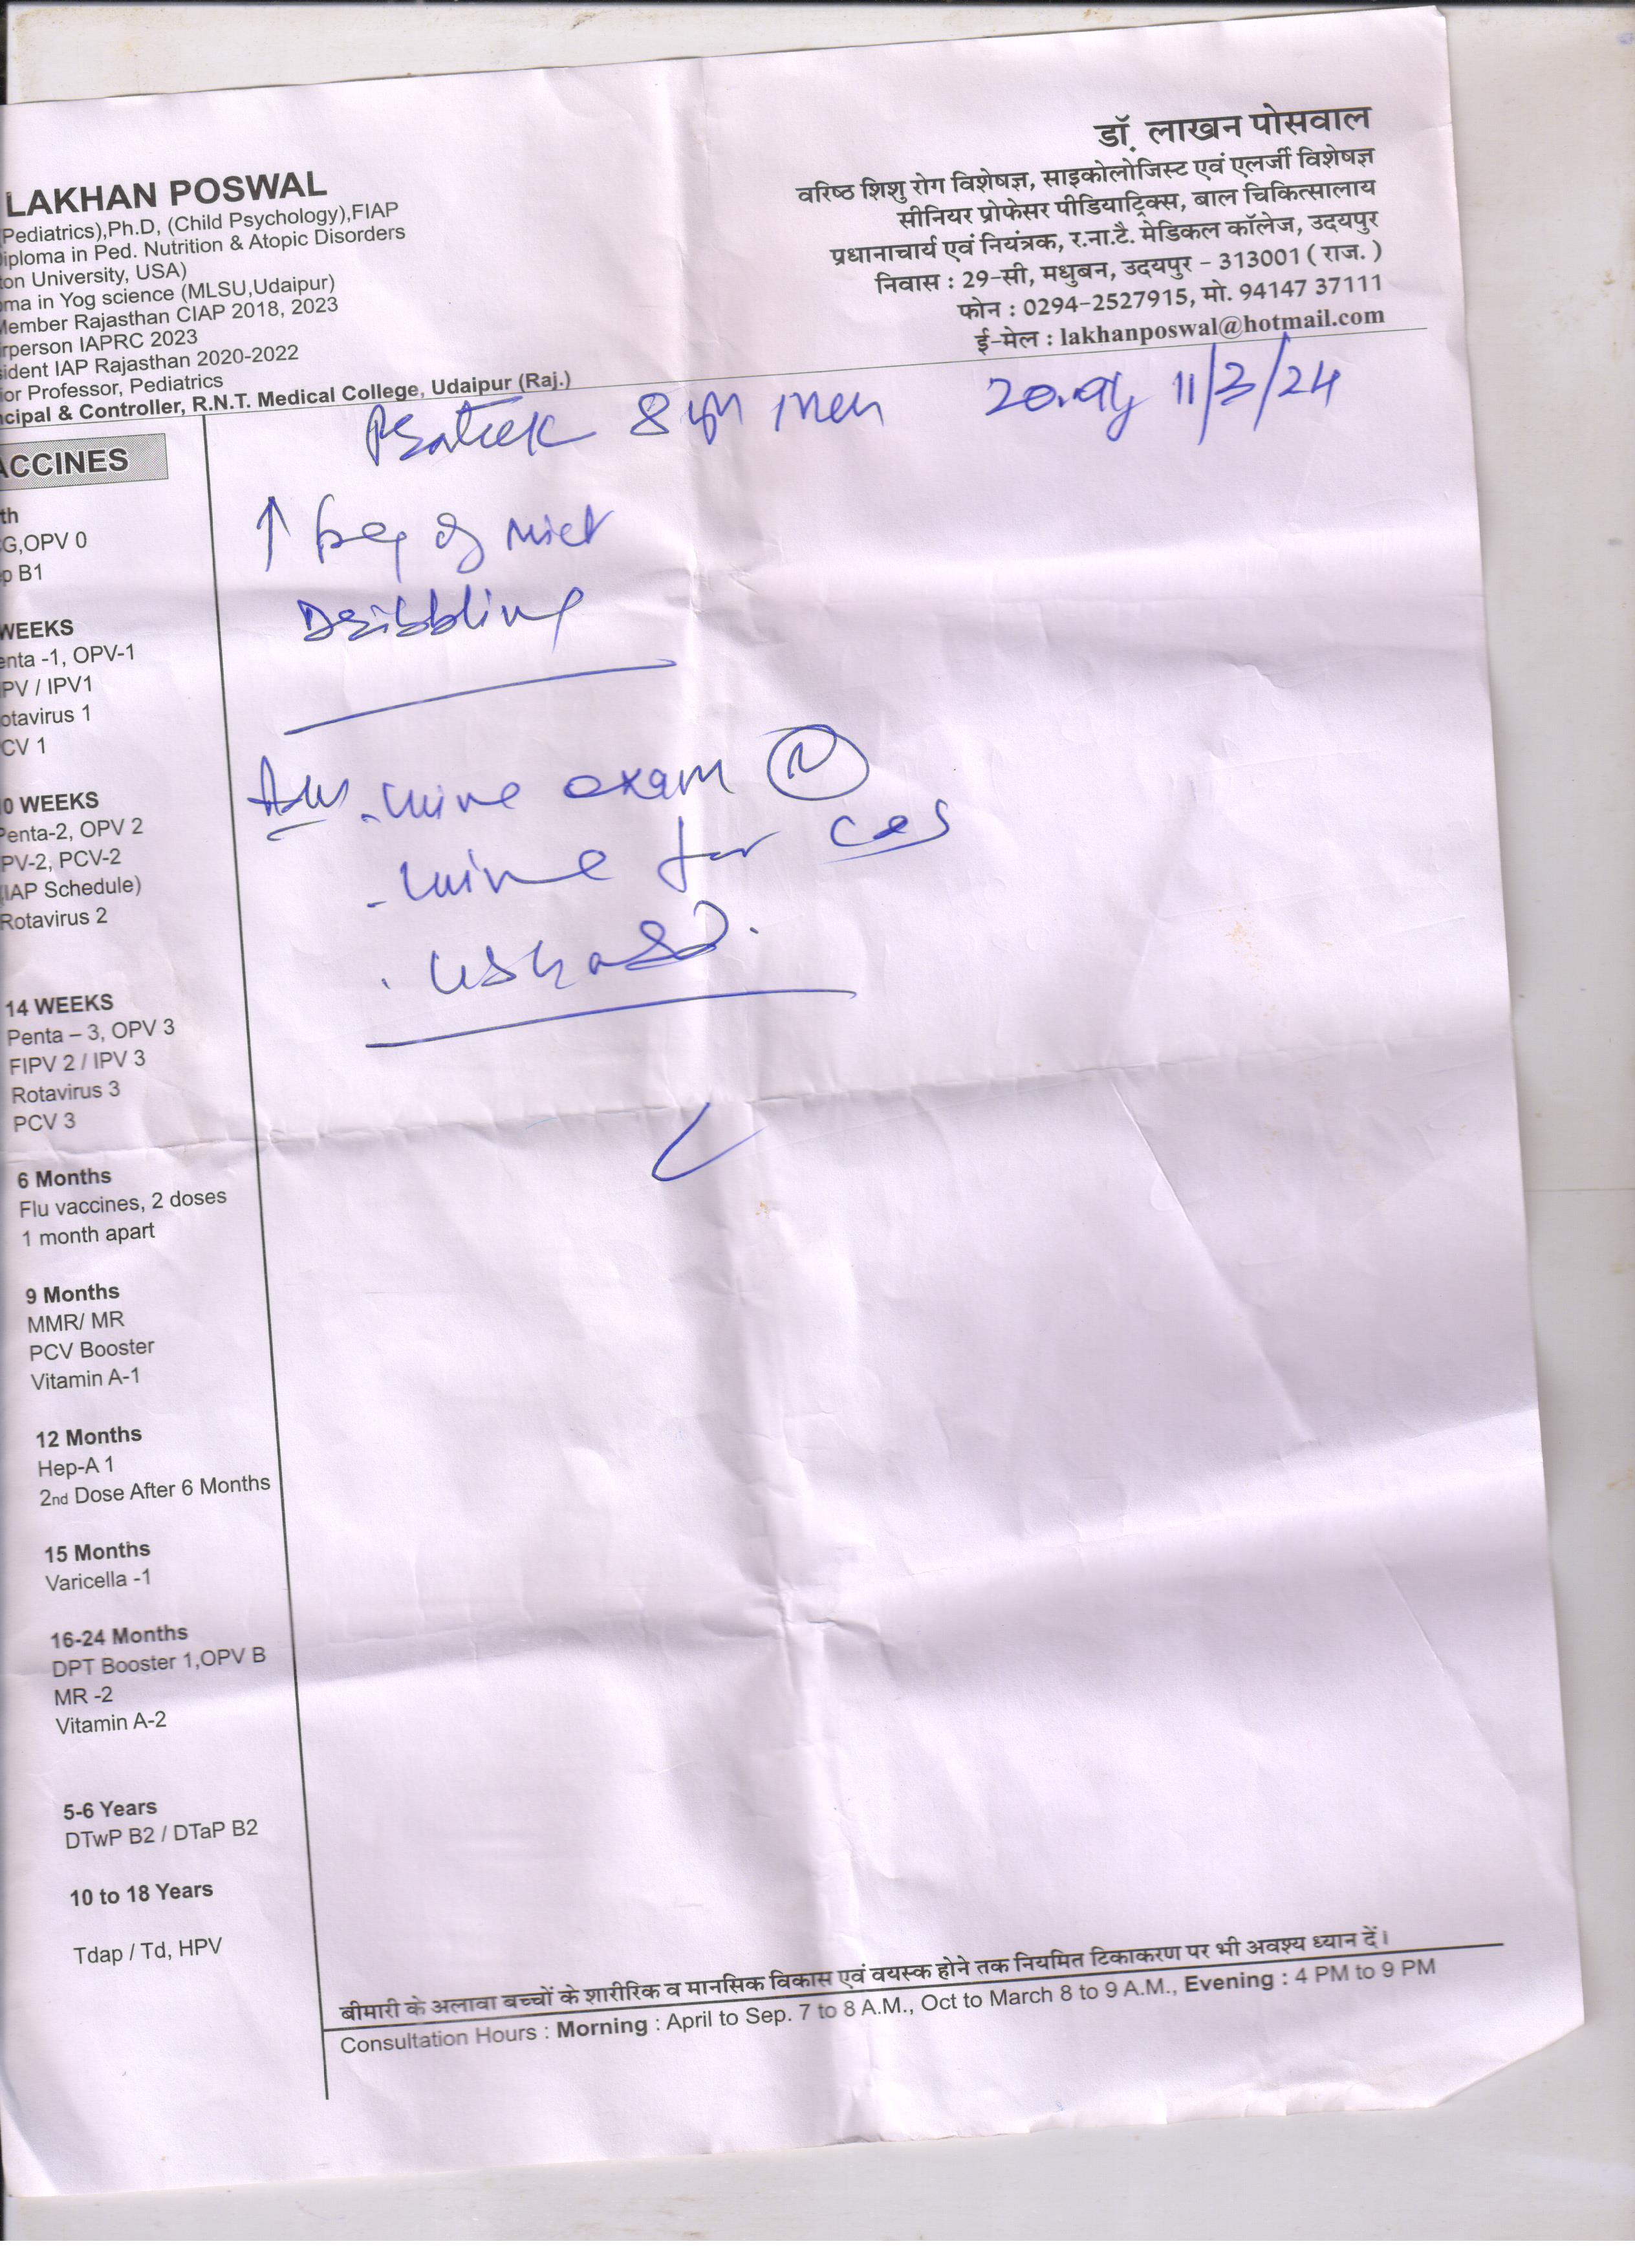 LAKHAN POSWAL
Pediatrics),Ph.D, (Child Psychology),FIAP
iploma in Ped. Nutrition & Atopic Disorders
ton University, USA)
ma in Yog science (MLSU,Udaipur)
Member Rajasthan CIAP 2018, 2023
rperson IAPRC 2023
ident IAP Rajasthan 2020-2022
ior Professor, Pediatrics
ncipal & Controller, R.N.T. Medical College, Udaipur (Raj.)
डॉ. लाखन पोसवाल
वरिष्ठ शिशु रोग विशेषज्ञ, साइकोलोजिस्ट एवं एलर्जी विशेषज्ञ
सीनियर प्रोफेसर पीडियाट्रिक्स, बाल चिकित्सालाय
प्रधानाचार्य एवं नियंत्रक, र.ना.टै. मेडिकल कॉलेज, उदयपुर
निवास : 29-सी, मधुबन, उदयपुर - 313001 ( राज. )
फोन : 0294-2527915, मो. 94147 37111
ई-मेल : lakhanposwal@hotmail.com
8 11/3/24
↑ of
Dribbling
urine exam
- urine for
ACCINES
th
G,OPV 0
p B1
WEEKS
enta -1, OPV-1
PV / IPV1
otavirus 1
CV 1
0 WEEKS
Penta-2, OPV 2
PV-2, PCV-2
(IAP Schedule)
Rotavirus 2
14 WEEKS
Penta – 3, OPV 3
FIPV 2 / IPV 3
Rotavirus 3
PCV 3
6 Months
Flu vaccines, 2 doses
1 month apart
9 Months
MMR/ MR
PCV Booster
Vitamin A-1
12 Months
Hep-A 1
2nd Dose After 6 Months
15 Months
Varicella -1
16-24 Months
DPT Booster 1,OPV B
MR -2
Vitamin A-2
5-6 Years
DTwP B2 / DTaP B2
10 to 18 Years
Tdap / Td, HPV
बीमारी के अलावा बच्चों के शारीरिक व मानसिक विकास एवं वयस्क होने तक नियमित टिकाकरण पर भी अवश्य ध्यान दें।
Consultation Hours : Morning : April to Sep. 7 to 8 A.M., Oct to March 8 to 9 A.M., Evening : 4 PM to 9 PM